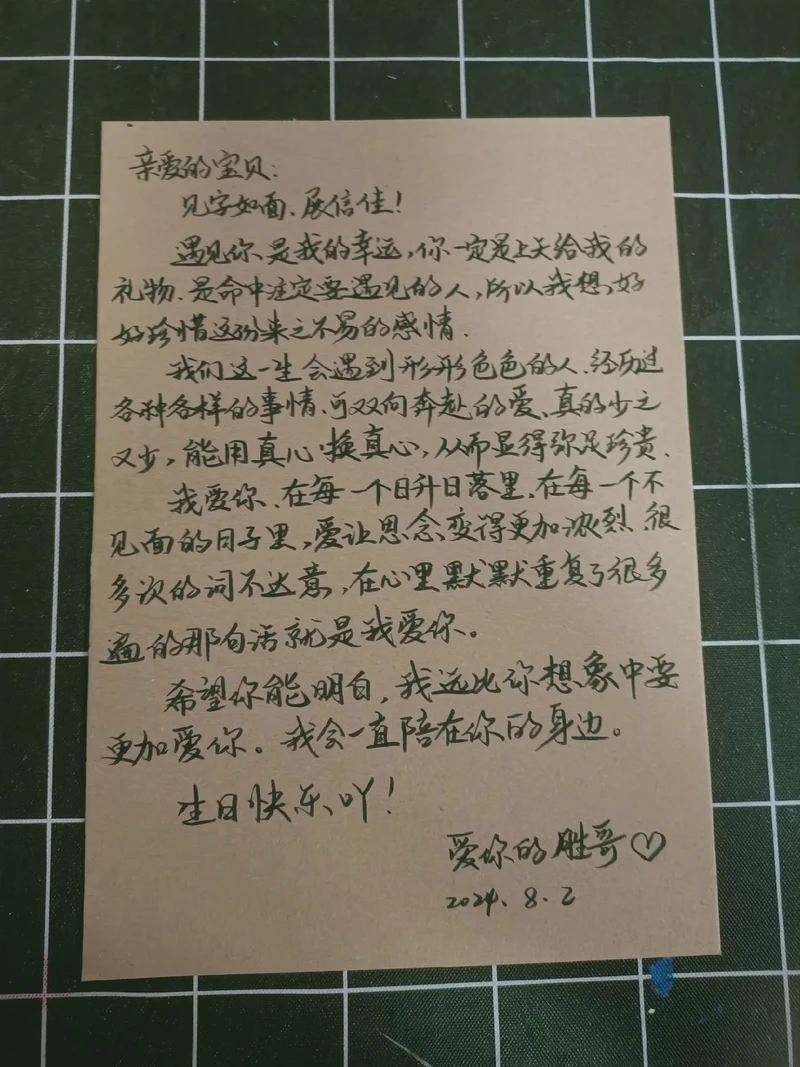 亲爱的宝贝：
见字如面、展信佳！
遇见你、是我的幸运，你一定是上天给我的
礼物、是命中注定要遇见的人，所以我想，好
好珍惜这份来之不易的感情.
我们这一生会遇到形形色色的人、经历过
各种各样的事情、可双向奔赴的爱、真的少之
又少，能用真心换真心，从而显得弥足珍贵、
我爱你、在每一个日升日落里、在每一个不
见面的日子里，爱让思念变得更加浓烈、很
多次的词不达意，在心里默默重复了很多
遍的那句话就是我爱你。
希望你能明白，我远比你想象中要
更加爱你。我会一直陪在你的身边。
生日快乐吖！
爱你的胜哥♡
2024、8、2